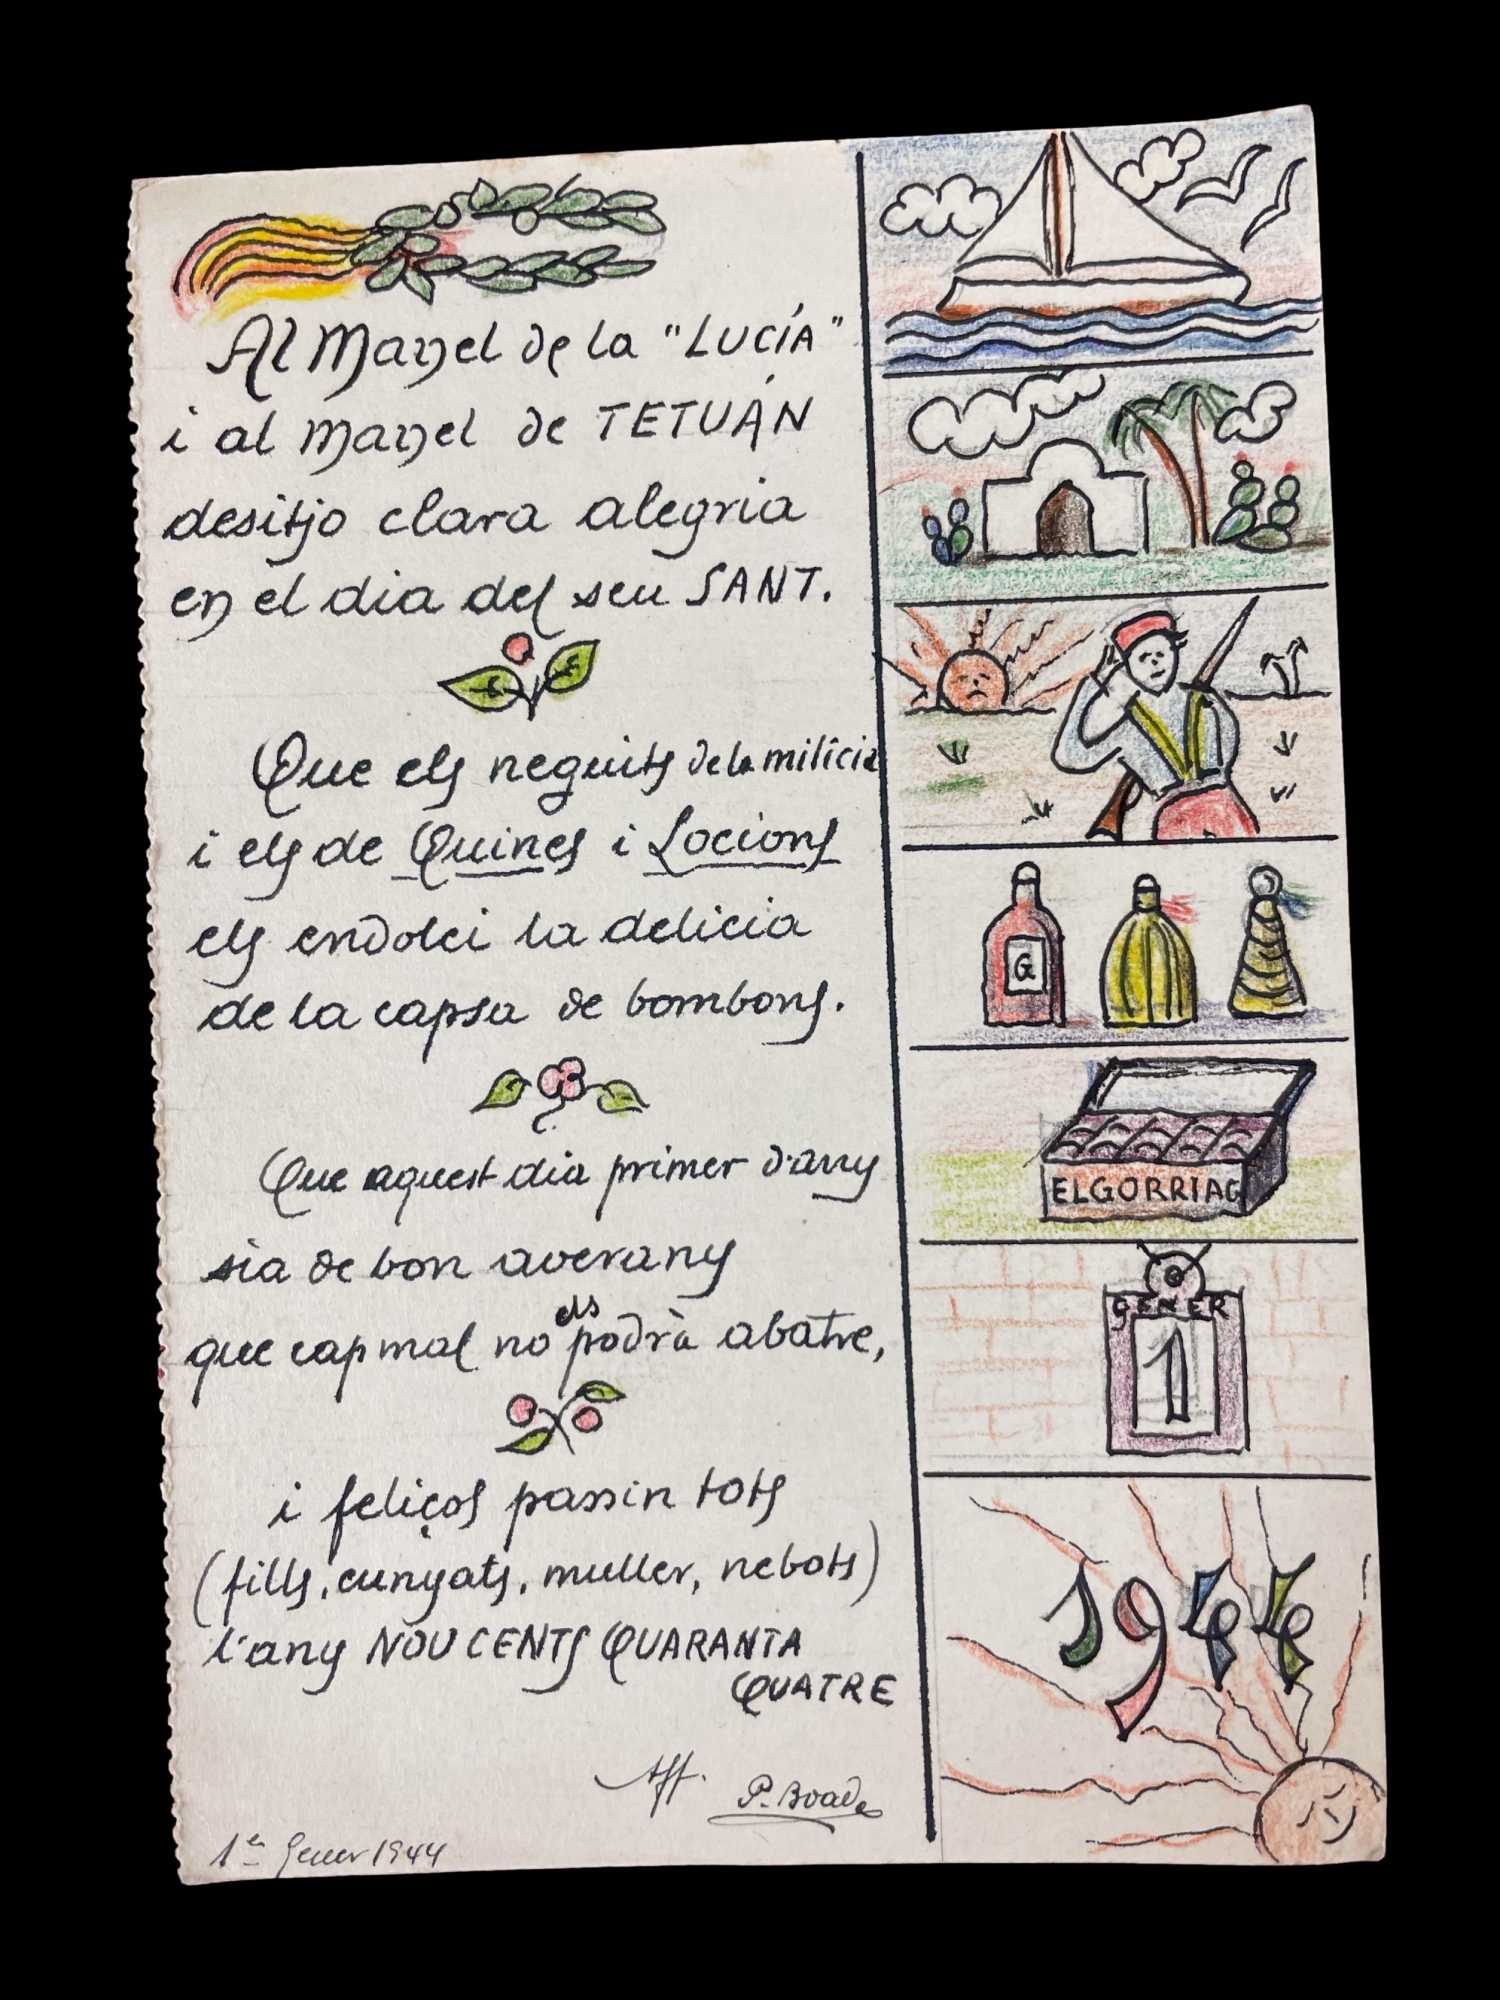 Al Manel de la "LUCÍA"
i al Manel de TETUÁN
desitjo clara alegria
en el dia del seu SANT.
Que els neguits de la milícia
i els de Quines i Locions
els endolci la delicia
de la capsa de bombons.
Que aquest dia primer d'any
sia de bon averany
que cap mal no els podrà abatre,
i feliços passin tots
(fills, cunyats, muller, nebots)
l'any NOU CENTS QUARANTA
QUATRE
Aff.
P. Boada
1er Gener 1944
G
ELGORRIAG
GENER
1
1944